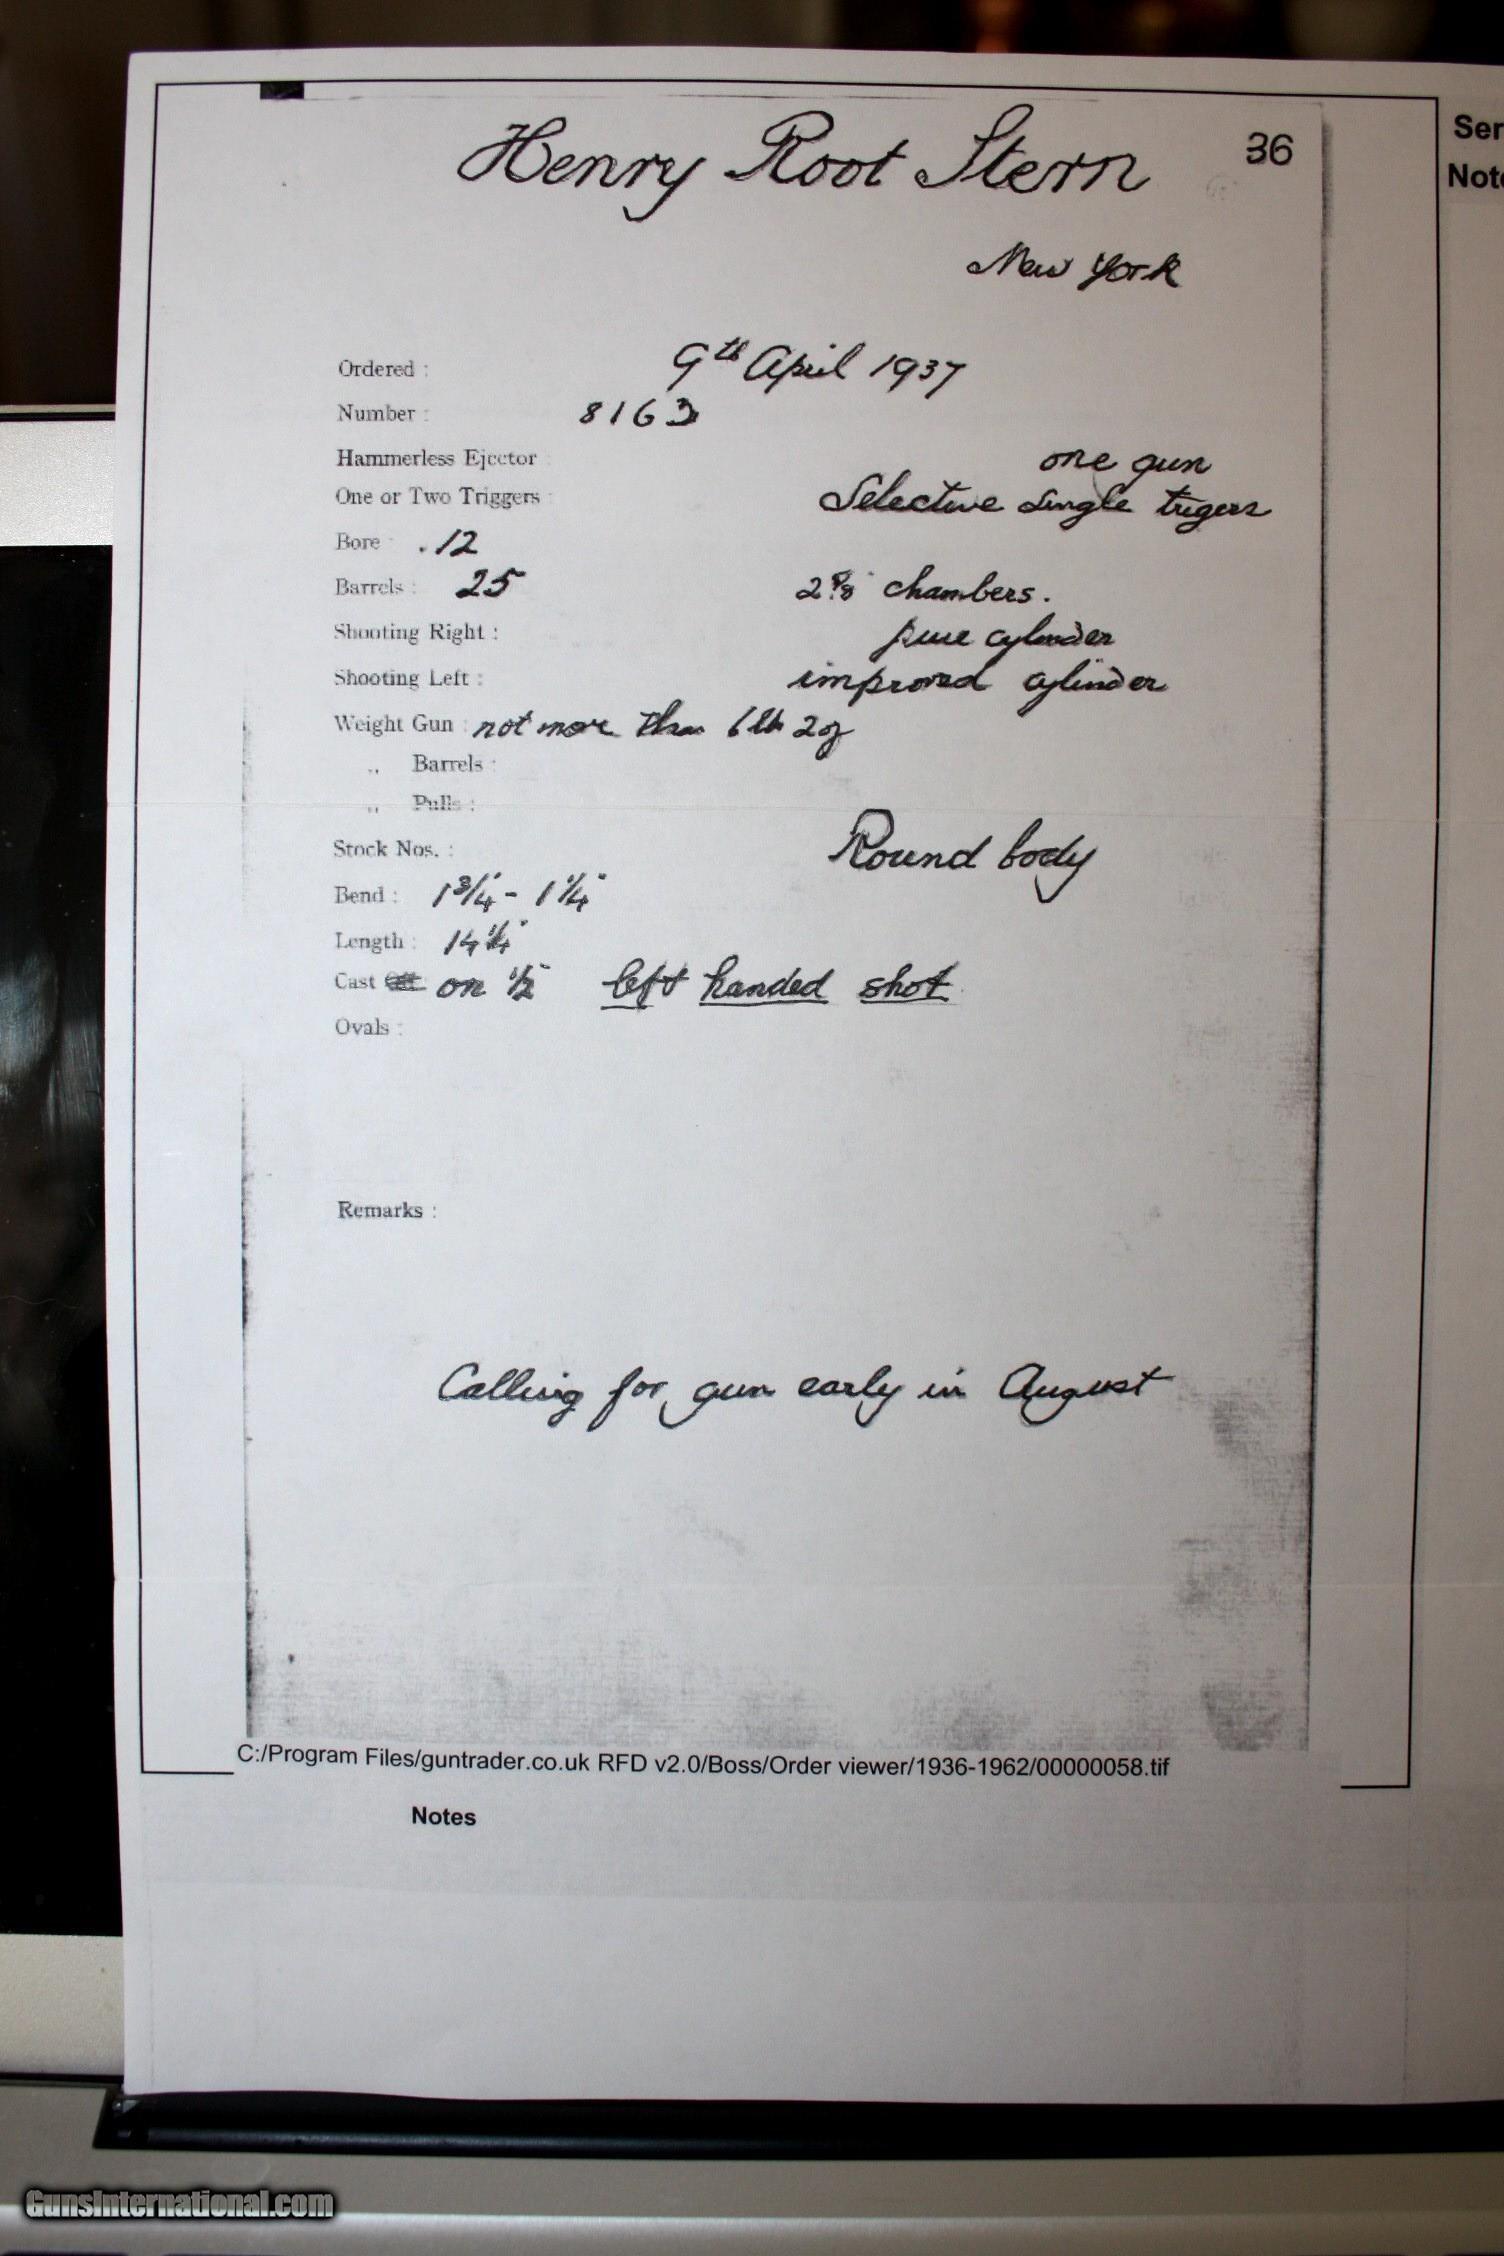 Henry Root Stern 36
New York
Ser
Note
Ordered : 9th April 1937
Number : 8163
Hammerless Ejector : one gun
One or Two Triggers : Selective single trigers
Bore : .12
Barrels : 25 2 5/8" chambers.
Shooting Right : pure cylinder
Shooting Left : improved cylinder
Weight Gun : not more than 6 lb 2 oz
,, Barrels :
,, Pulls :
Stock Nos. : Round body
Bend : 1 3/4" - 1 1/4"
Length : 14 1/4"
Cast on 1/2" left handed shot
Ovals :
Remarks :
Calling for gun early in August
C:/Program Files/guntrader.co.uk RFD v2.0/Boss/Order viewer/1936-1962/00000058.tif
Notes
GunsInternational.com